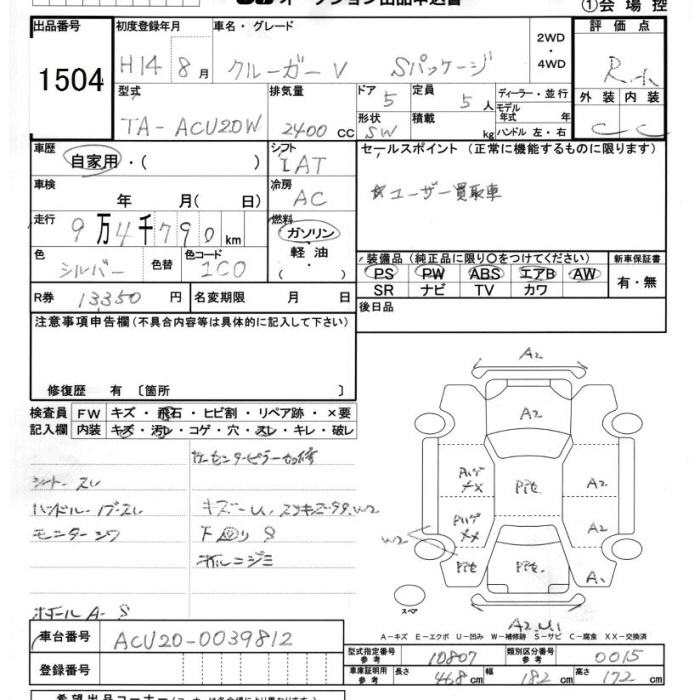 オークション出品申込書
①会場控
出品番号 1504
初度登録年月 H14 8月
車名・グレード クルーガーV Sパッケージ
2WD・4WD
評価点 R
外装 内装
C C
型式 TA-ACU20W
排気量 2400 CC
ドア 5
形状 SW
定員 5人
積載 kg
ディーラー・並行
モデル年式 年
ハンドル 左・右
車歴 自家用・( )
シフト IAT
セールスポイント (正常に機能するものに限ります)
☆ユーザー買取車
車検 年 月( 日)
冷房 AC
走行 9万4千790km
燃料 ガソリン 軽油・( )
色 シルバー 色替
色コード 1C0
装備品 (純正品に限り○をつけてください)
新車保証書
PS PW ABS エアB AW
SR ナビ TV カワ
有・無
R券 13350円
名変期限 月 日
後日品
注意事項申告欄 (不具合内容等は具体的に記入して下さい)
修復歴 有 〔箇所 〕
検査員記入欄
FW キズ・飛石・ヒビ割・リペア跡・×要
内装 キズ・汚レ・コゲ・穴・スレ・キレ・破レ
シート スレ
ハンドル
モニター
キズー
下回り S
ボール A-S
A2
A2
A2
A2
W2
A1
A2.U1
スペア
A-キズ E-エクボ U-凹み W-補修跡 S-サビ C-腐食 XX-交換済
車台番号 ACU20-0039812
登録番号
型式指定番号 参考 10807
類別区分番号 参考 0015
車庫証明用 参考 長さ 468cm 幅 182cm 高さ 172cm
希望出品コーナー